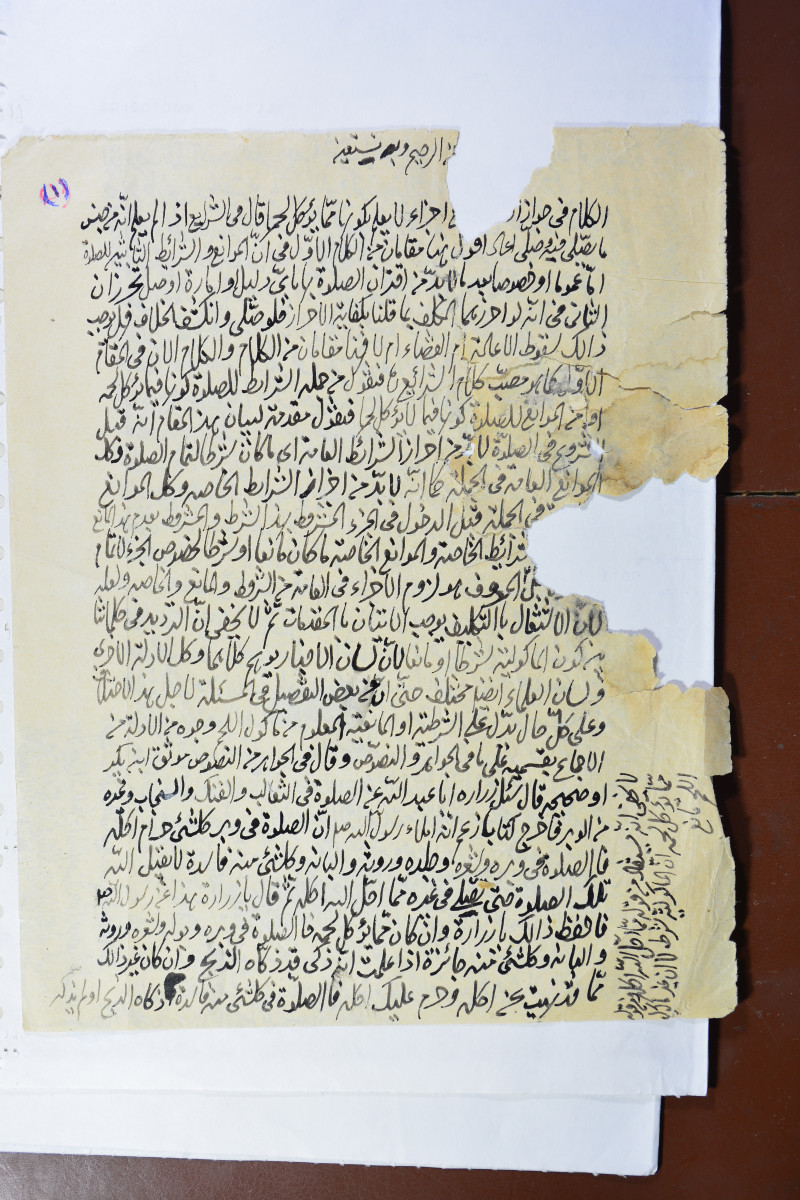 الرحيم وبه نستعين
(١)
الكلام فى جواز اجزاء لا يعلم بكونها ممّا يؤكل لحمها قال فى الشرايع اذ الم يعلم انّه من جنس
ما يصلّى فيه وصلّى اعاد اقول هنا مقامان من الكلام الاوّل فى انّ الموانع والشرائط الثابتة للصلوة
امّا عموما او خصوصا بعد ما لا بدّ من اقتران الصلوة بها باىّ دليل وامارة او صل تحرزان
الثانى فى انّه لو احرزهما المكلف بما قلنا بكفاية الاحراز فلو صلّى وانكشف الخلاف فهل يوجب
ذالك سقوط الاعادة ام القضاء ام لا فهنا مقامان من الكلام والكلام الان فى المقام
الاوّل كما هو مصبّ كلام الشرائع فنقول من جملة الشرائط للصلوة كونها فيما يؤكل لحمه
او من الموانع للصلوة كونها فيما لا يؤكل لحمها فنقول مقدمة لبيان هذا المقام انّه قبل
الشروع فى الصلوة لا بدّ من احراز الشرائط العامة اى ما كان شرطا لتمام الصلوة وكل
الموانع العامة فى الجملة كما انّه لا بدّ من احراز الشرايط الخاصه وكل الموانع
فى الجملة قبل الدخول فى الجزء المشروط بهذا الشرط والمشروط بعدم هذا المانع
شرائط الخاصة والموانع الخاصة ما كان مانعا او شرطا لخصوص الجزء لا تمام
بل المعروف هو لزوم الاحراء فى العامة من الشروط والمانع والخاصه ولعله
لان الامتثال بالتكليف يوجب الاتيان بالمقدمات ثمّ لا يخفى انّ الترديد فى كلماتنا
من كون الماكولية شرطا او مانعا لانّ لسان الاخبار يوهم كلّا بهما وكل الادلة الاخرى
ولسان العلماء ايضا مختلف حتّى انّ عن بعض التفصيل فى المسئلة لاجل هذا الاختلاف
وعلى كلّ حال تدلّ على الشرطية او المانعية المعلوم من ماكول اللحم وجوه من الادلة من
الاجماع بقسميه على ما فى الجواهر والنصوص وقال فى الجواهر من النصوص موثق ابن بكير
او صحيحه قال سئل زراره ابا عبد اللّه عن الصلوة فى الثعالب والفنك والسنجاب وغيره
من الوبر فاخرج كتابا زعم انّه املاء رسول اللّه ص انّ الصلوة فى وبر كلشئى حرام اكله
فالصلوة فى وبره وشعره وجلده وروثه والبانه وكلشئى منه فاسدة لا يقبل اللّه
تلك الصلوة حتى يصلّى فى غيره ممّا احلّ اللّه اكله ثمّ قال يا زرارة هذا عن رسول اللّه ص
فاحفظ ذالك يا زرارة وان كان ممّا يؤكل لحمه فالصلوة فى وبره وبوله وشعره وروثه
والبانه وكلشئى منه جائزة اذا علمت انّه ذكى قد ذكاه الذبح وان كان غير ذالك
ممّا قد نهيت عن اكله وحرم عليك اكله فالصلوة فى كلشئى منه فاسدة ذكاه الذبح او لم يذكه